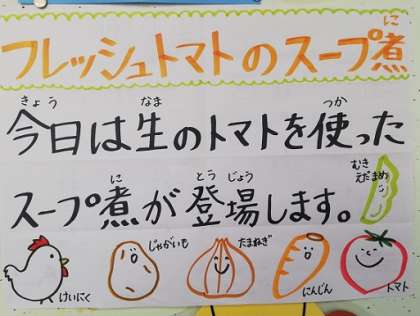 フレッシュトマトのスープ煮
に
きょう なま つか
今日は生のトマトを使った
に とうじょう
スープ煮が登場します。
むき
えだまめ
けいにく
じゃがいも
たまねぎ
にんじん
トマト